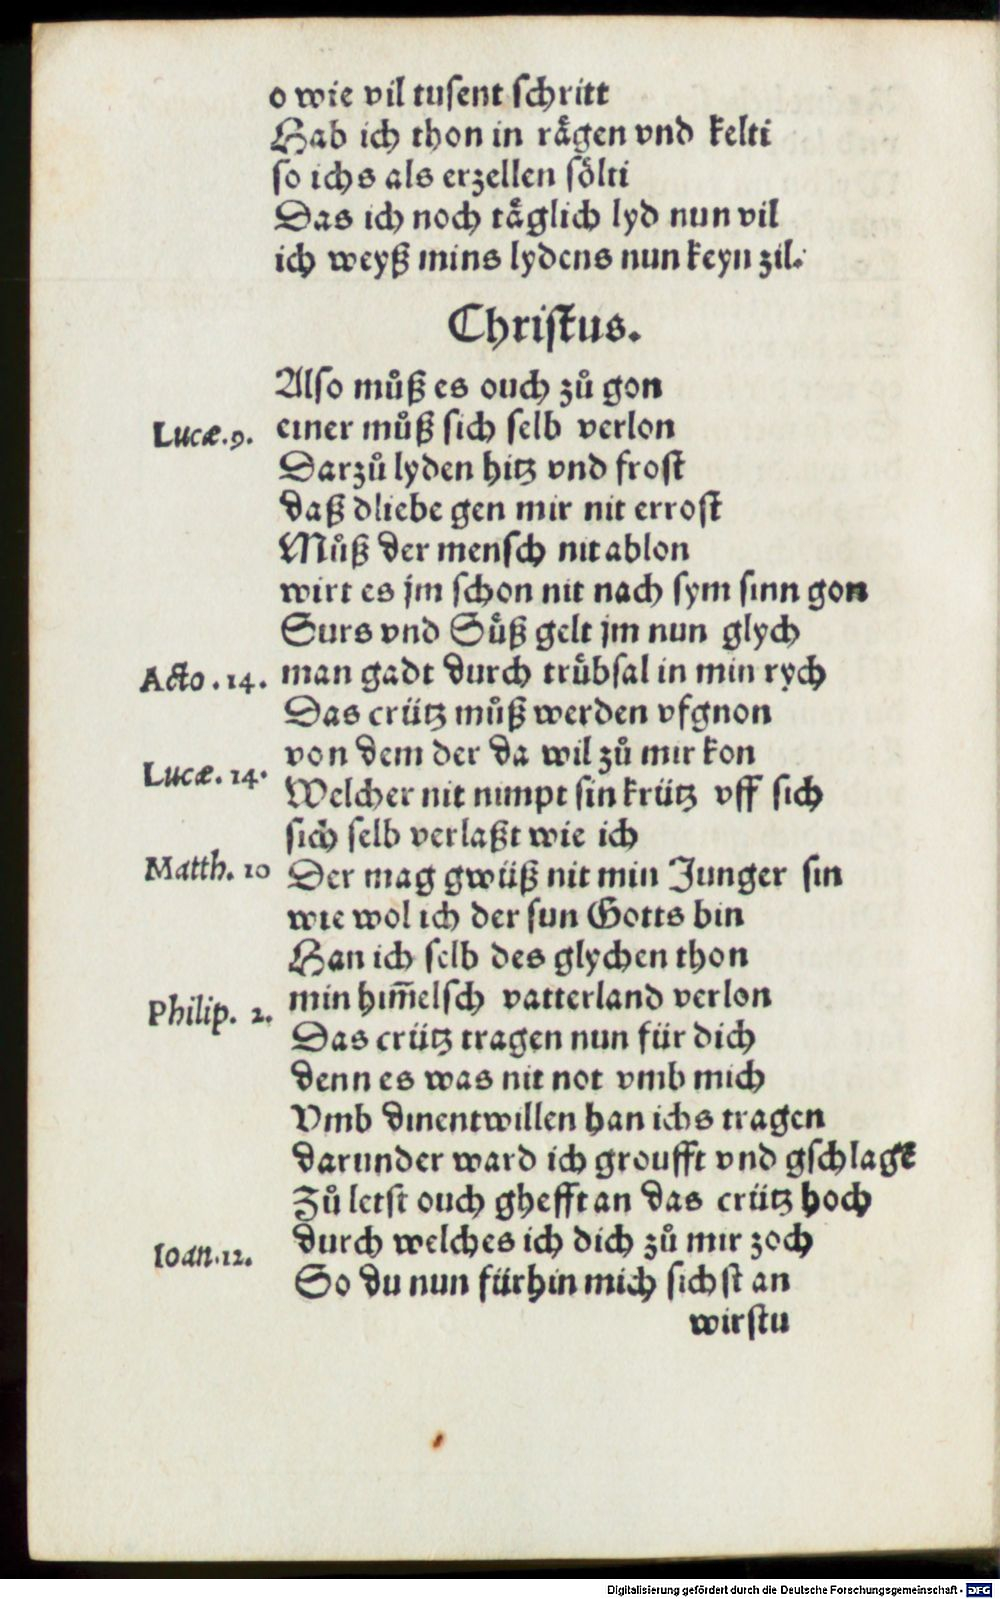 o wie vil tusent schritt
Hab ich thon in rågen vnd kelti
so ichs als erzellen sölti
Das ich noch tåglich lyd nun vil
ich weyß mins lydens nun keyn zil.
Christus.
Also můß es ouch zů gon
Lucæ.9. einer můß sich selb verlon
Darzů lyden hitz vnd frost
daß dliebe gen mir nit errost
Můß der mensch nit ablon
wirt es jm schon nit nach sym sinn gon
Surs vnd Sůß gelt jm nun glych
Acto.14. man gadt durch trůbsal in min rych
Das crütz můß werden vfgnon
von dem der da wil zů mir kon
Lucæ.14. Welcher nit nimpt sin krütz vff sich
sich selb verlaßt wie ich
Matth. 10 Der mag gwüß nit min Junger sin
wie wol ich der sun Gotts bin
Han ich selb des glychen thon
Philip. 2. min him̃elsch vatterland verlon
Das crütz tragen nun für dich
denn es was nit not vmb mich
Vmb dinentwillen han ichs tragen
darunder ward ich groufft vnd gschlagẽ
Zů letst ouch ghefft an das crütz hoch
Ioan.12. durch welches ich dich zů mir zoch
So du nun fürhin mich sichst an
wirstu
Digitalisierung gefördert durch die Deutsche Forschungsgemeinschaft - DFG